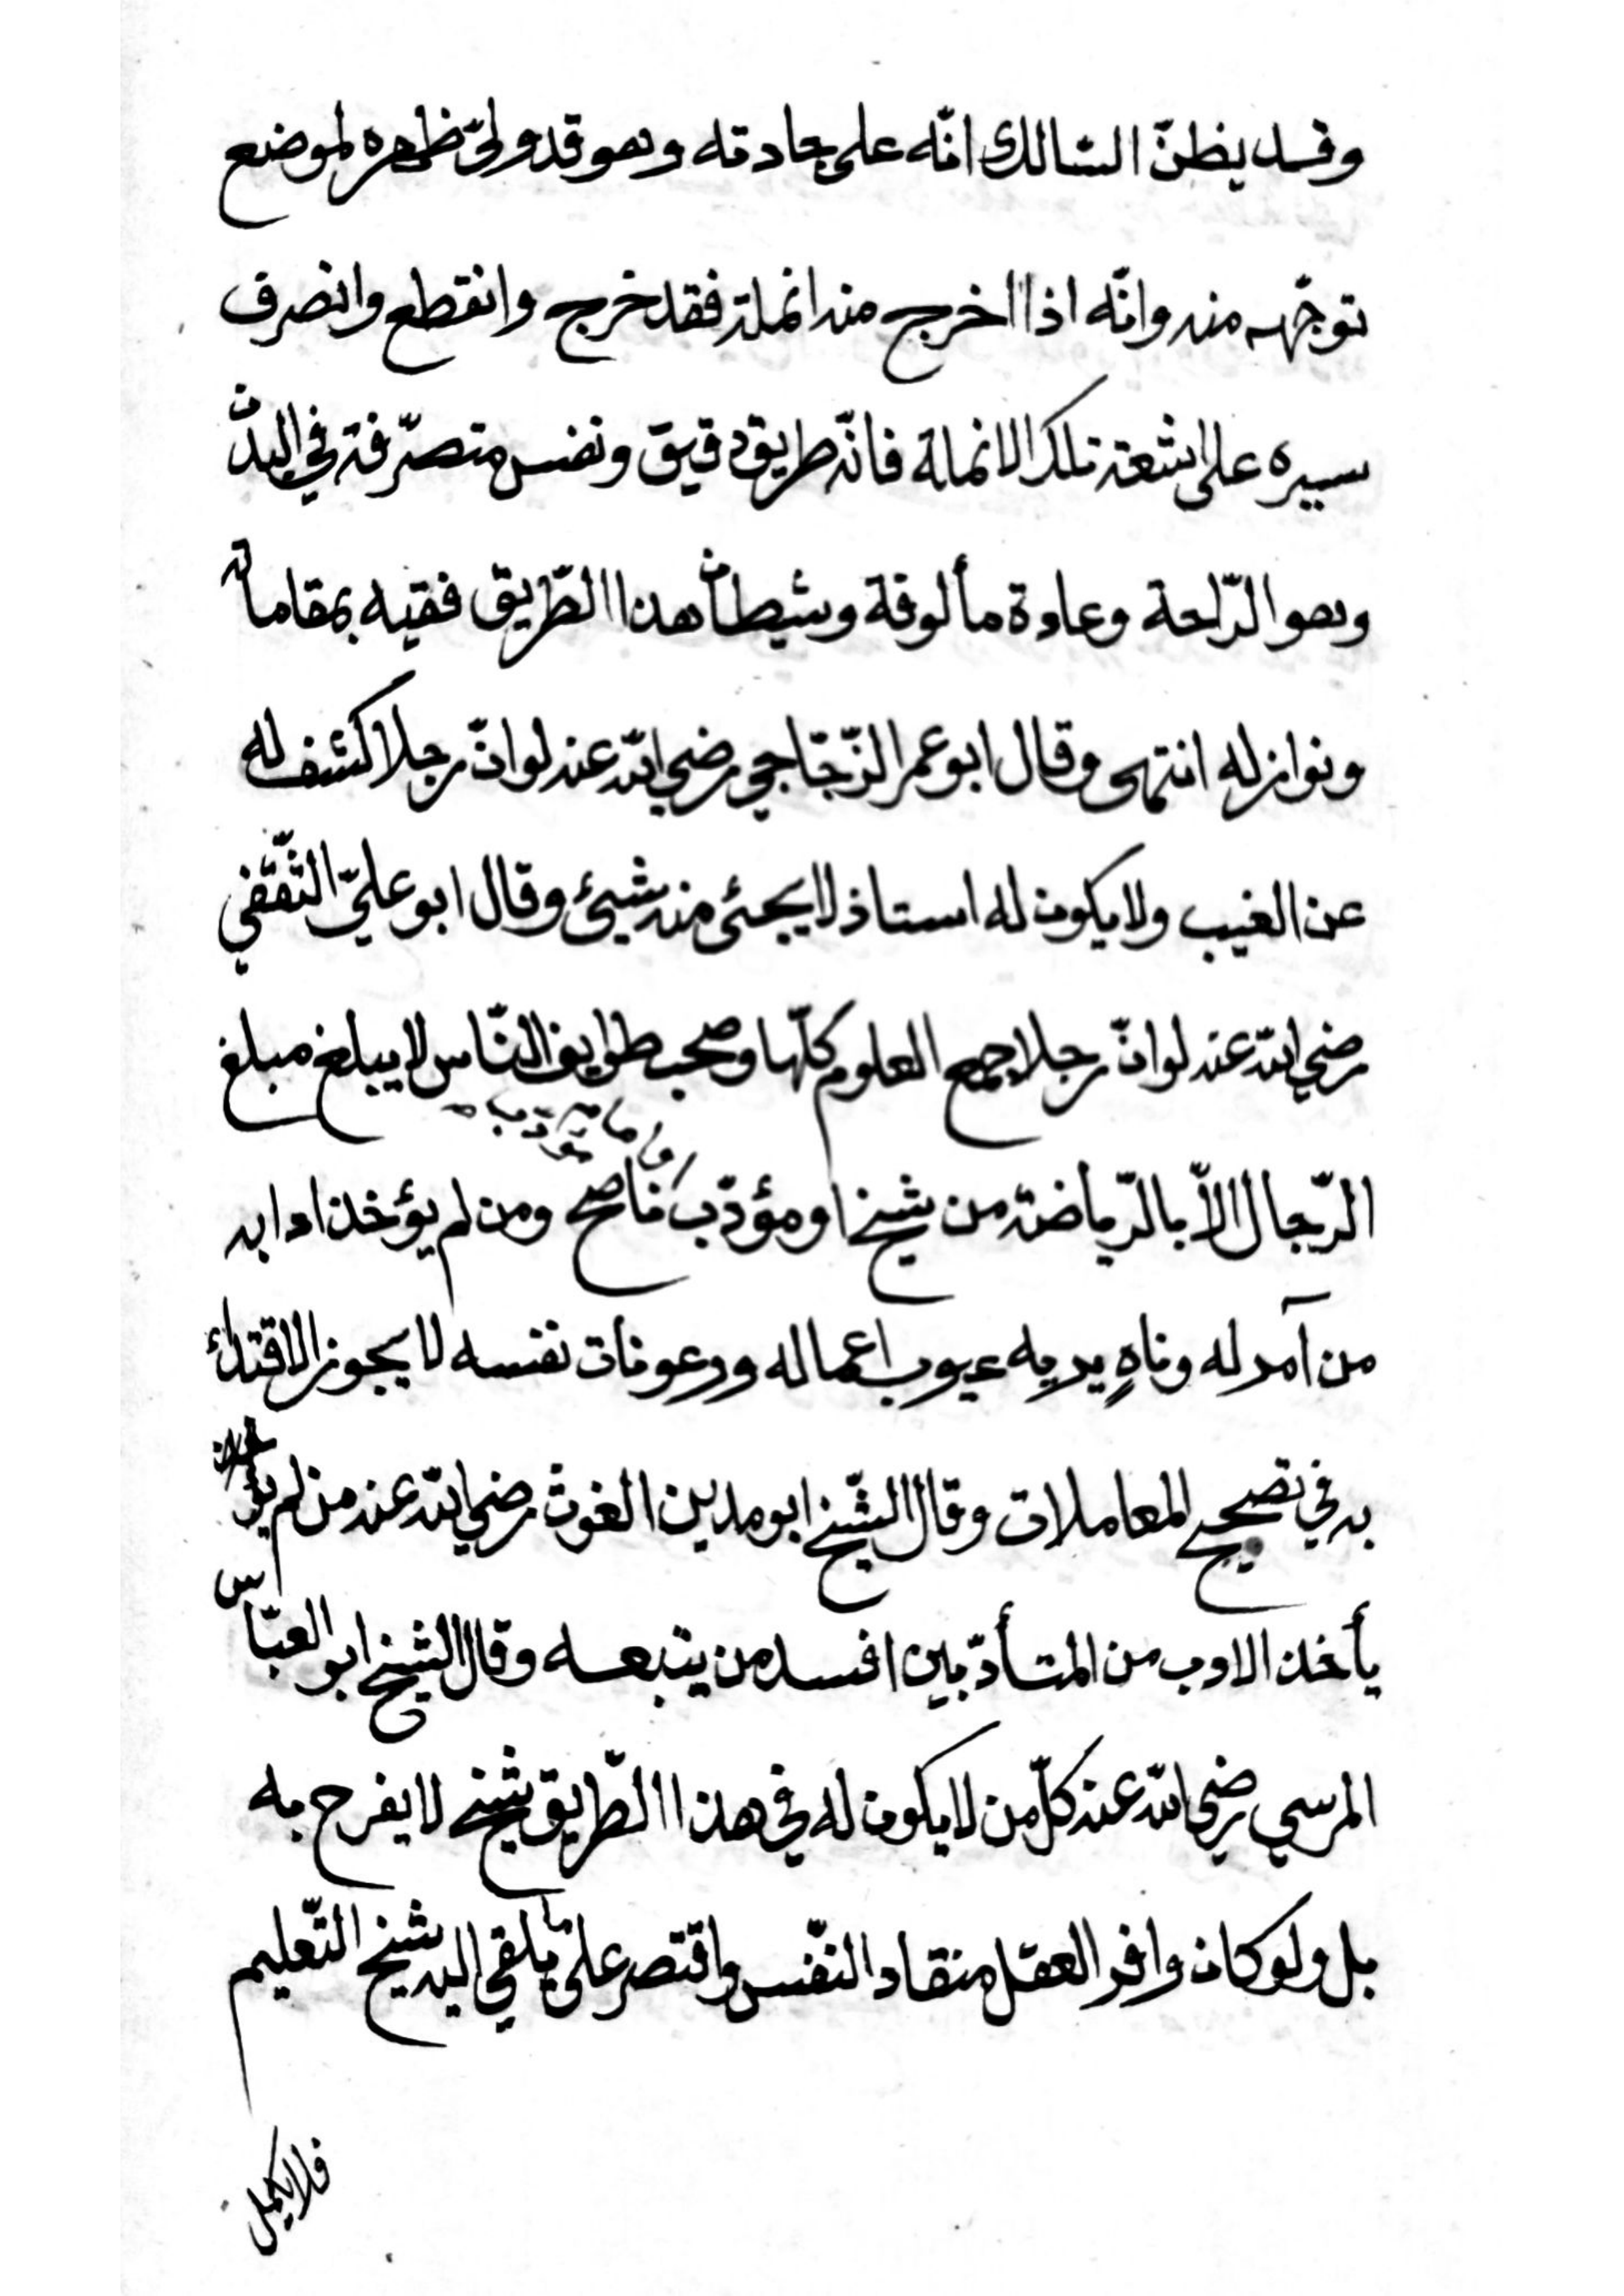 وقد يظنّ السالك انّه على جادته وهو قد ولىّ ظهره لموضع
توجّهه منه وانّه اذا اخرج منه انملة فقد خرج وانقطع وانصرف
سيره على اشعة تلك الانملة فانّه طريق دقيق ونفس متصرّفة في البدن
وهو الرّاحة وعادة مألوفة وشيطان هذا الطّريق فقيه بمقاماته
ونوازله انتهى وقال ابو عمر الزّجّاجي رضي الله عنه لو انّ رجلا كشف له
عن الغيب ولا يكون له استاذ لا يجئى منه شيئ وقال ابو عليّ الثّقفي
رضي الله عنه لو انّ رجلا جمع العلوم كلّها وصحب طوايف النّاس لا يبلغ مبلغ
الرّجال الاّ بالرّياضة من شيخ او مؤدّب ناصح ومن لم يؤخذ ادابه
من آمر له وناهٍ يريه عيوب اعماله ورعونات نفسه لا يجوز الاقتداء
به في تصحيح المعاملات وقال الشّيخ ابو مدين الغوث رضي الله عنه من لم
يأخذ الادب من المتأدّبين افسد من يتبعه وقال الشيخ ابو العبّاس
المرسي رضي الله عنه كلّ من لا يكون له في هذا الطّريق شيخ لا يفرح به
بل ولو كان وافر العقل منقاد النّفس واقتصر على ما يلقي اليه شيخ التّعليم
فلا يكمل